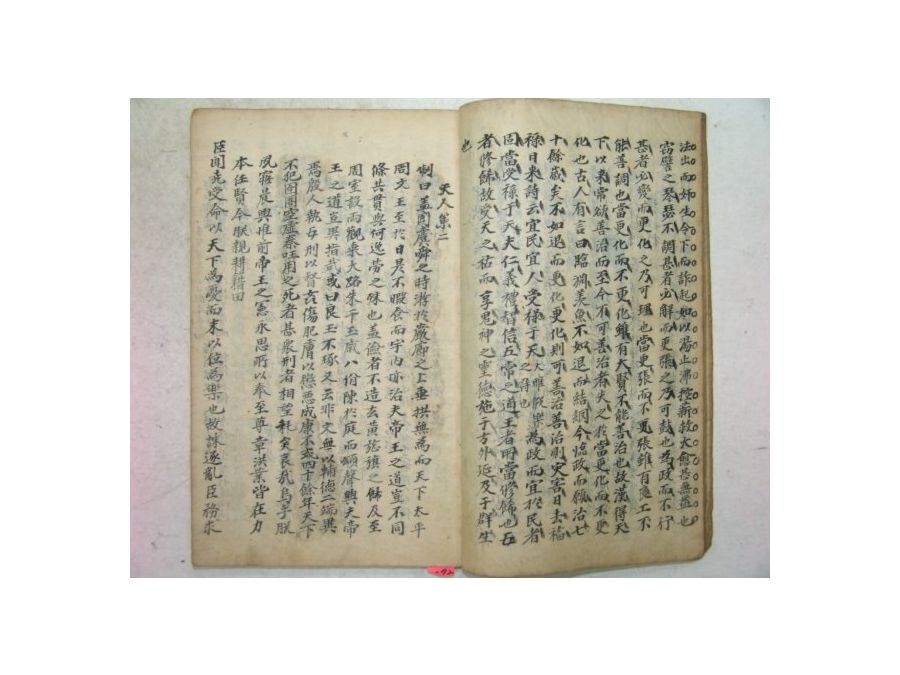 法出而姧生令下而詐起如以湯止沸抱薪救火愈甚無益也
竊譬之琴瑟不調甚者必解而更張之乃可鼓也為政而不行
甚者必變而更化之乃可理也當更張而不更張雖有良工不
能善調也當更化而不更化雖有大賢不能善治也故漢得天
下以來常欲善治而至今不可善治者失之於當更化而不更
化也古人有言曰臨淵羨魚不如退而結網今臨政而願治七
十餘歲矣不如退而更化更化則可善治善治則灾害日去福
祿日來詩云宜民宜人受祿于天大雅假樂之詩也為政而宜於民者
固當受祿于天夫仁義禮智信五常之道王者所當修飾也五
者修飾故受天之祐而享鬼神之重德施于方外延及于群生
也
天人策二
制曰盖聞虞舜之時游於巖廊之上垂拱無為而天下太平
周文王至於日昃不暇食而宇內亦治夫帝王之道豈不同
條共貫與何逸勞之殊也盖儉者不造玄黃旌旗之飾及至
周室設兩觀乘大路朱干玉戚八佾陳於庭而頌聲興夫帝
王之道豈異指哉或曰良玉不琢又云非文無以輔德二端異
焉殷人執五刑以督姦傷肥膚以懲惡成康不式四十餘年天下
不犯囹圄空虛秦國用之死者甚衆刑者相望耗矣哀哉烏乎朕
夙寤晨興惟前帝王之憲永思所以奉至尊章洪業皆在力
本任賢今朕親耕耤田
臣聞堯受命以天下為憂而未以位為樂也故誅逐亂臣務求
-72